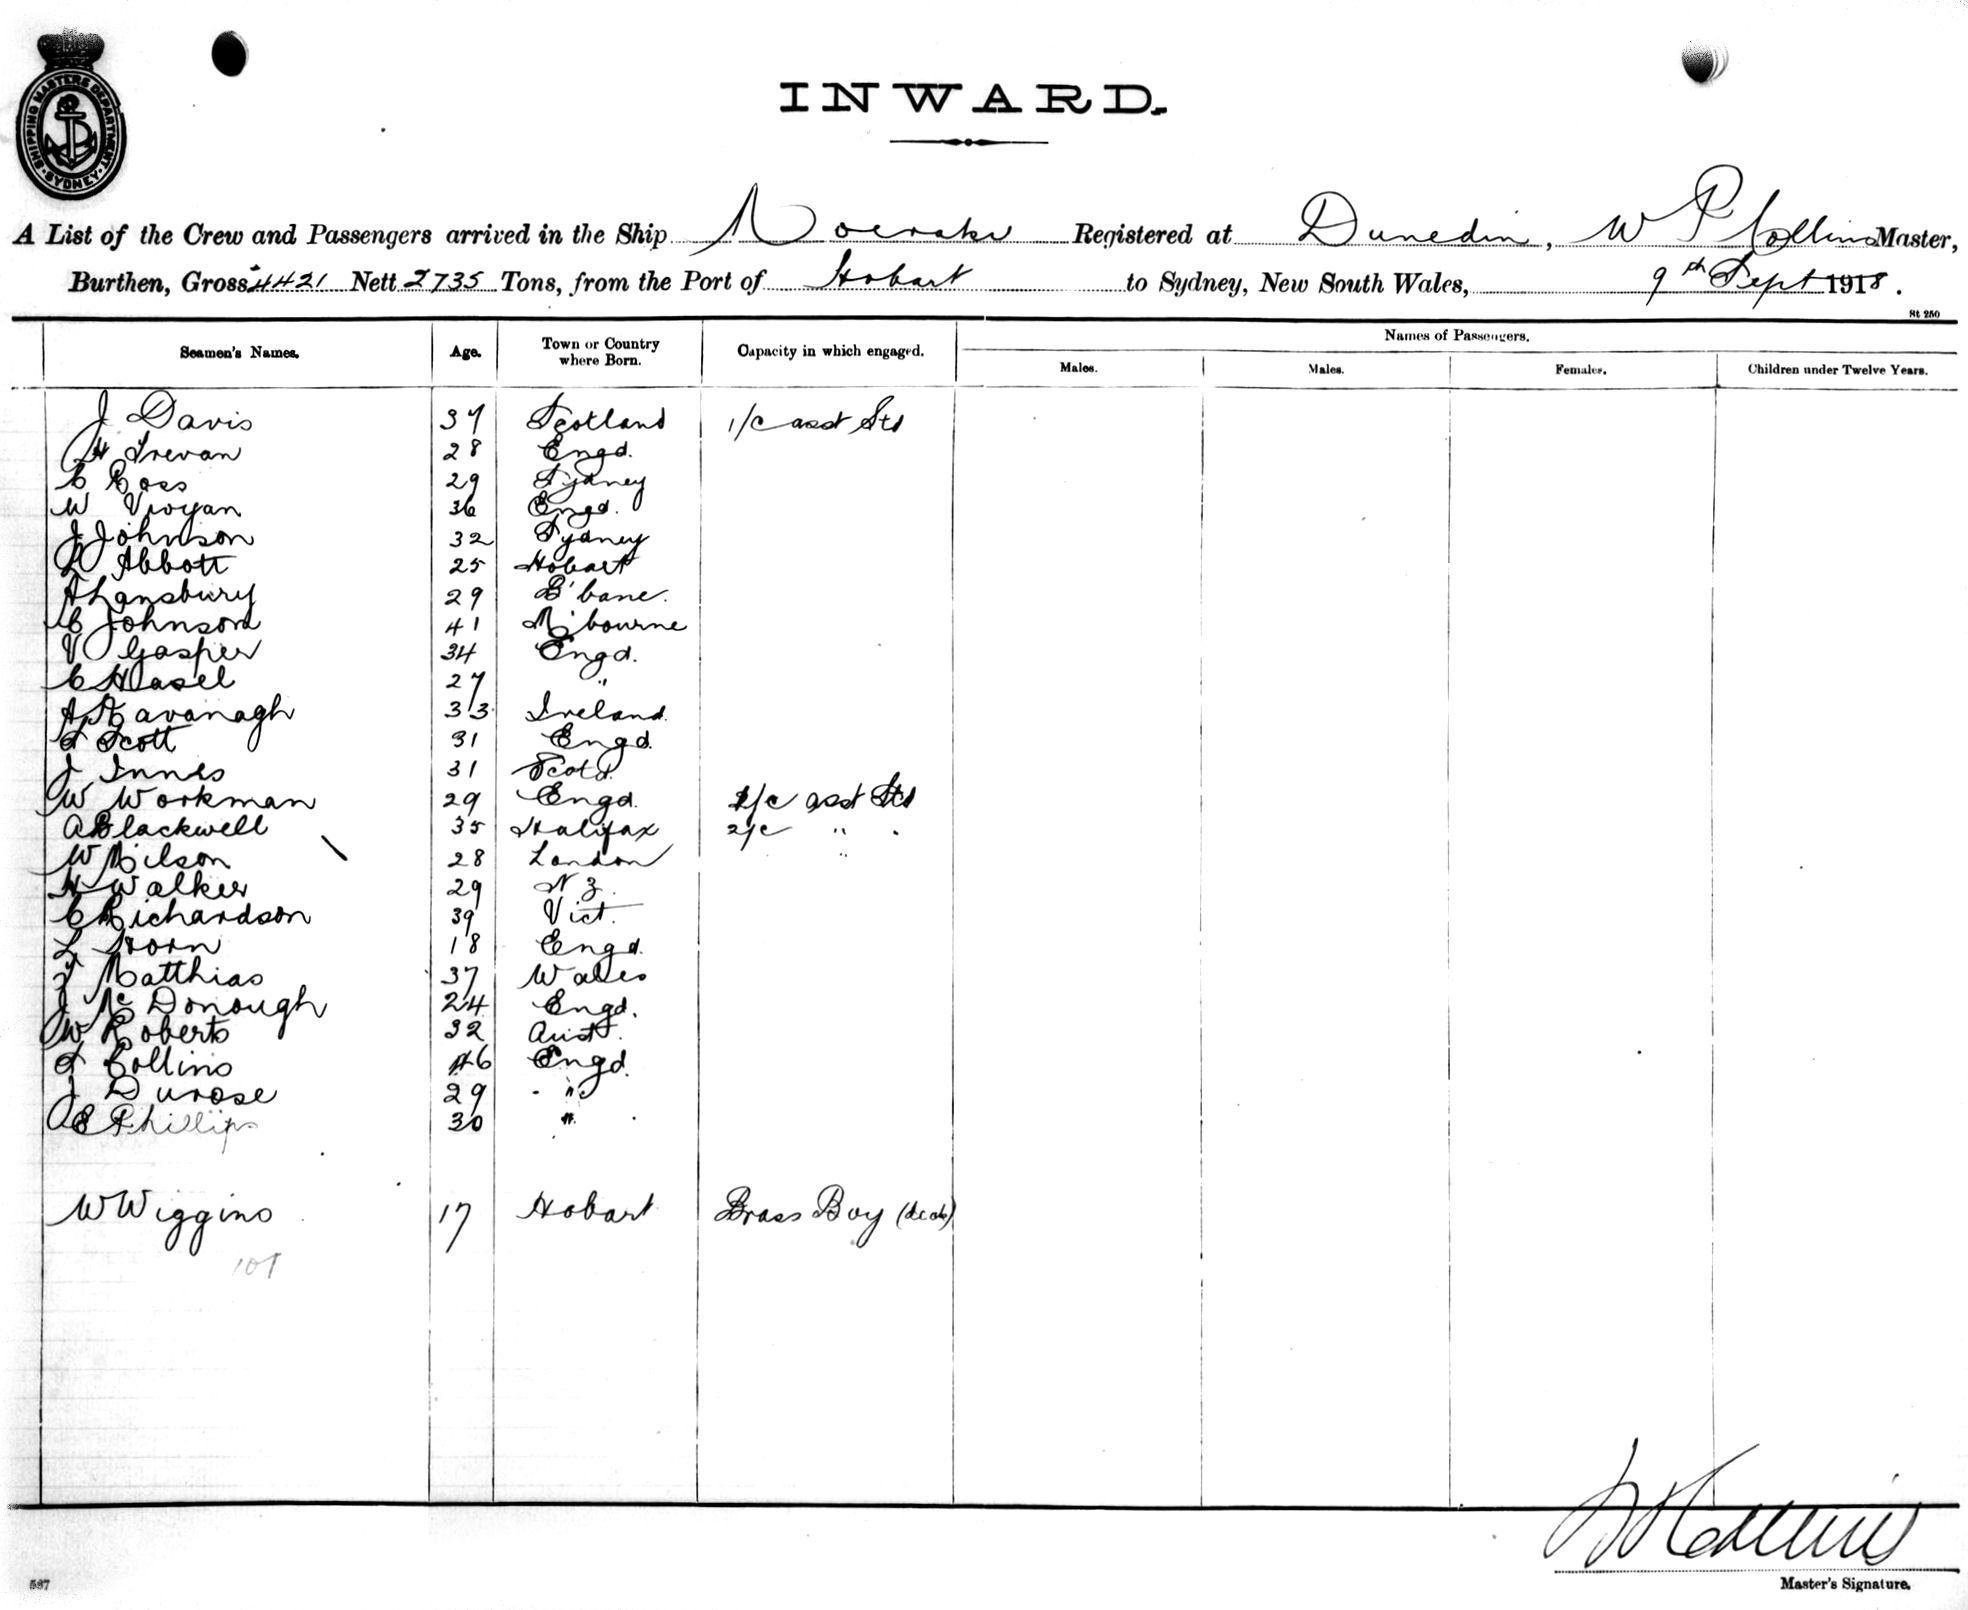 SHIPPING MASTERS DEPARTMENT
SYDNEY
INWARD.
A List of the Crew and Passengers arrived in the Ship Moeraki Registered at Dunedin, W P Collins Master,
Burthen, Gross 4421 Nett 2735 Tons, from the Port of Hobart to Sydney, New South Wales, 9th Sept 1918.
St 250
Seamen's Names. Age. Town or Country where Born. Capacity in which engaged. Names of Passengers.
Males. Males. Females. Children under Twelve Years.
J Davis 37 Scotland 1/c asst Std
H Trevan 28 Engd.
C Ross 29 Sydney
W Vivyan 36 Engd.
J Johnson 32 Sydney
A Abbott 25 Hobart
A Lansbury 29 B'bane.
C Johnson 41 M'bourne
V Gasper 34 Engd.
C Hasel 27 "
A Kavanagh 33 Ireland
F Scott 31 Engd.
J Innes 31 Scotd.
W Workman 29 Engd. 1/c asst Std
A Blackwell 35 Halifax 2/c " "
W Nilson 28 London "
H Walker 29 N Z.
C Richardson 39 Vict.
L Horn 18 Engd.
T Matthias 37 Wales
J McDonough 24 Engd.
W Roberts 32 Aust.
F Collins 46 Engd.
J Durose 29 "
A E Phillips 30 "
W Wiggins 17 Hobart Brass Boy (deck)
107
W P Collins
Master's Signature.
597